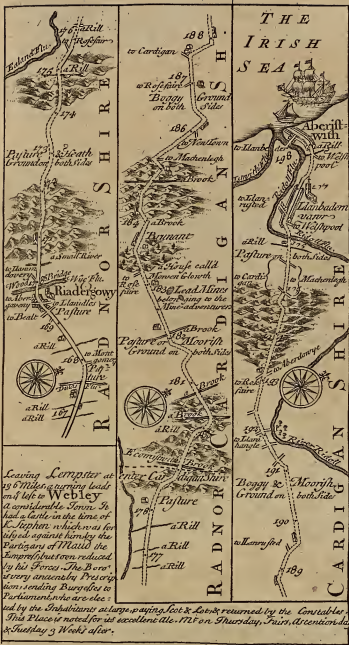 176 a Rill
to Rosefair
Ealand Flu.
175
a Rill
174
173
Pasture & Heath
Ground on both Sides
a Small River
Bridge
Wye Flu.
Woods
Riadergowy
to Llanidles
to Aber-
gavenny
Pasture
to Bealt
169
a Rill
168
to Mont
gomery
Pas-
ture
a Rill
167
a Rill
RADNOR SHIRE
188
to Cardigan
187
to Rosefaire
Boggy Ground
on both Sides
186
to New Town
to Machenlegh
a Brook
184
a Brook
Brunant
a House call'd
Merven Glowth
to Rose
faire
Lead Mines
belonging to the
Mine-adventurers
a Brook
Pasture or Moorish
Ground on both Sides
181
a Brook
a Brook
a Rill
a Brook
enter Cardiganshire
Pasture
178
a Rill
177
a Rill
RADNOR CARDIGAN SH.
THE
IRISH
SEA
Aberist=
with
a Rill
to Llanbeder
198
to Welsh
pool
to Llan
rysted
197
Llanbadern
vawr
to Welshpool
a Rill
Pasture on both sides
to Cardi
gan
to Machenlegh
to Aberdovye
to Rose
faire
193
192
to Llani
hangle
River Ridol
191
Boggy & Moorish
Ground on both sides
190
to Llanrysted
189
CARDIGAN SHIRE
Leaving Lempster at
196 Miles, a turning leads
on ye left to Webley
a considerable Town. It
had a Castle in the time of
K. Stephen which was for
tifyed against him by the
Partizans of Maud the
Empress, but soon reduced
by his Forces. The Boro'
is very ancient by Prescrip
tion, sending Burgesses to
Parliament, who are elec=
ted by the Inhabitants at large, paying Scot & Lot, & returned by the Constables.
This Place is noted for its excellent Ale. Mt. on Thursday, Fairs, Ascention-da
& Tuesday 3 Weeks after.